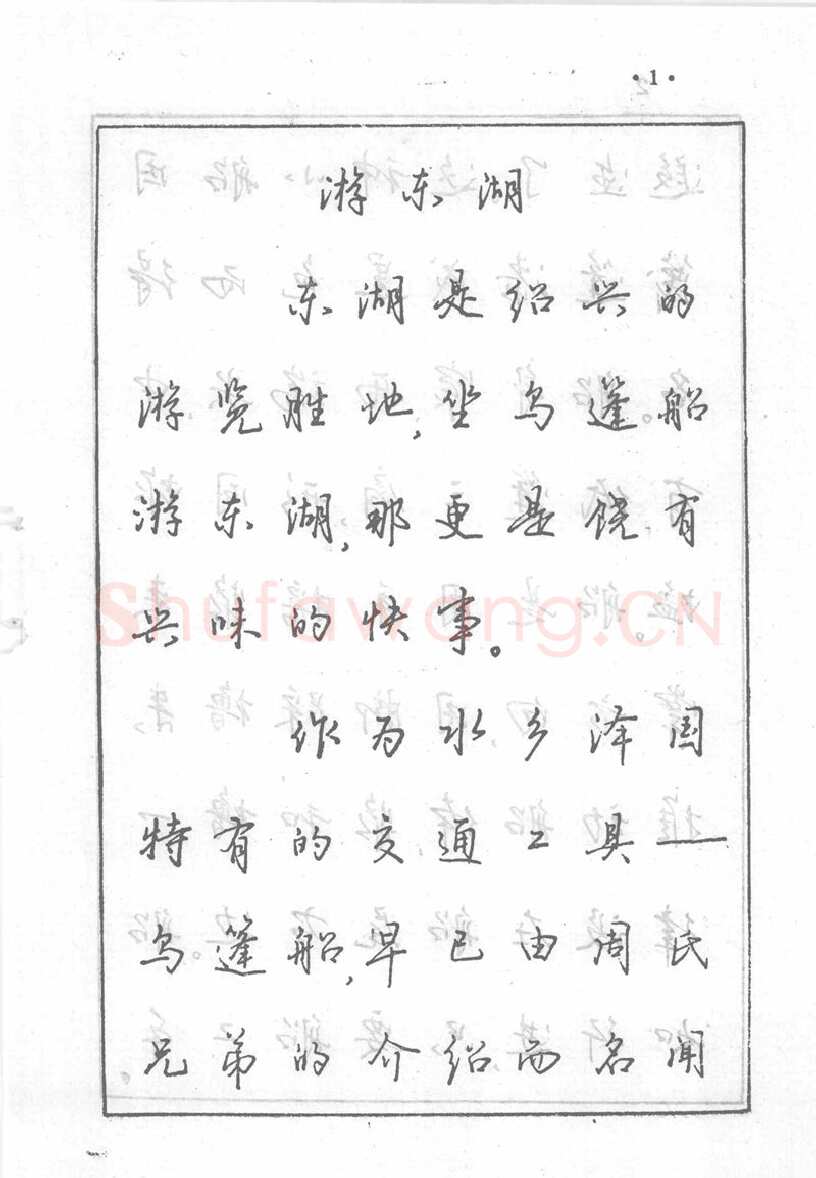 ·1·
游东湖
东湖是绍兴的
游览胜地,坐乌篷船
游东湖,那更是饶有
兴味的快事。
Shufawang.CN
作为水乡泽国
特有的交通工具——
乌篷船,早已由周氏
兄弟的介绍而名闻